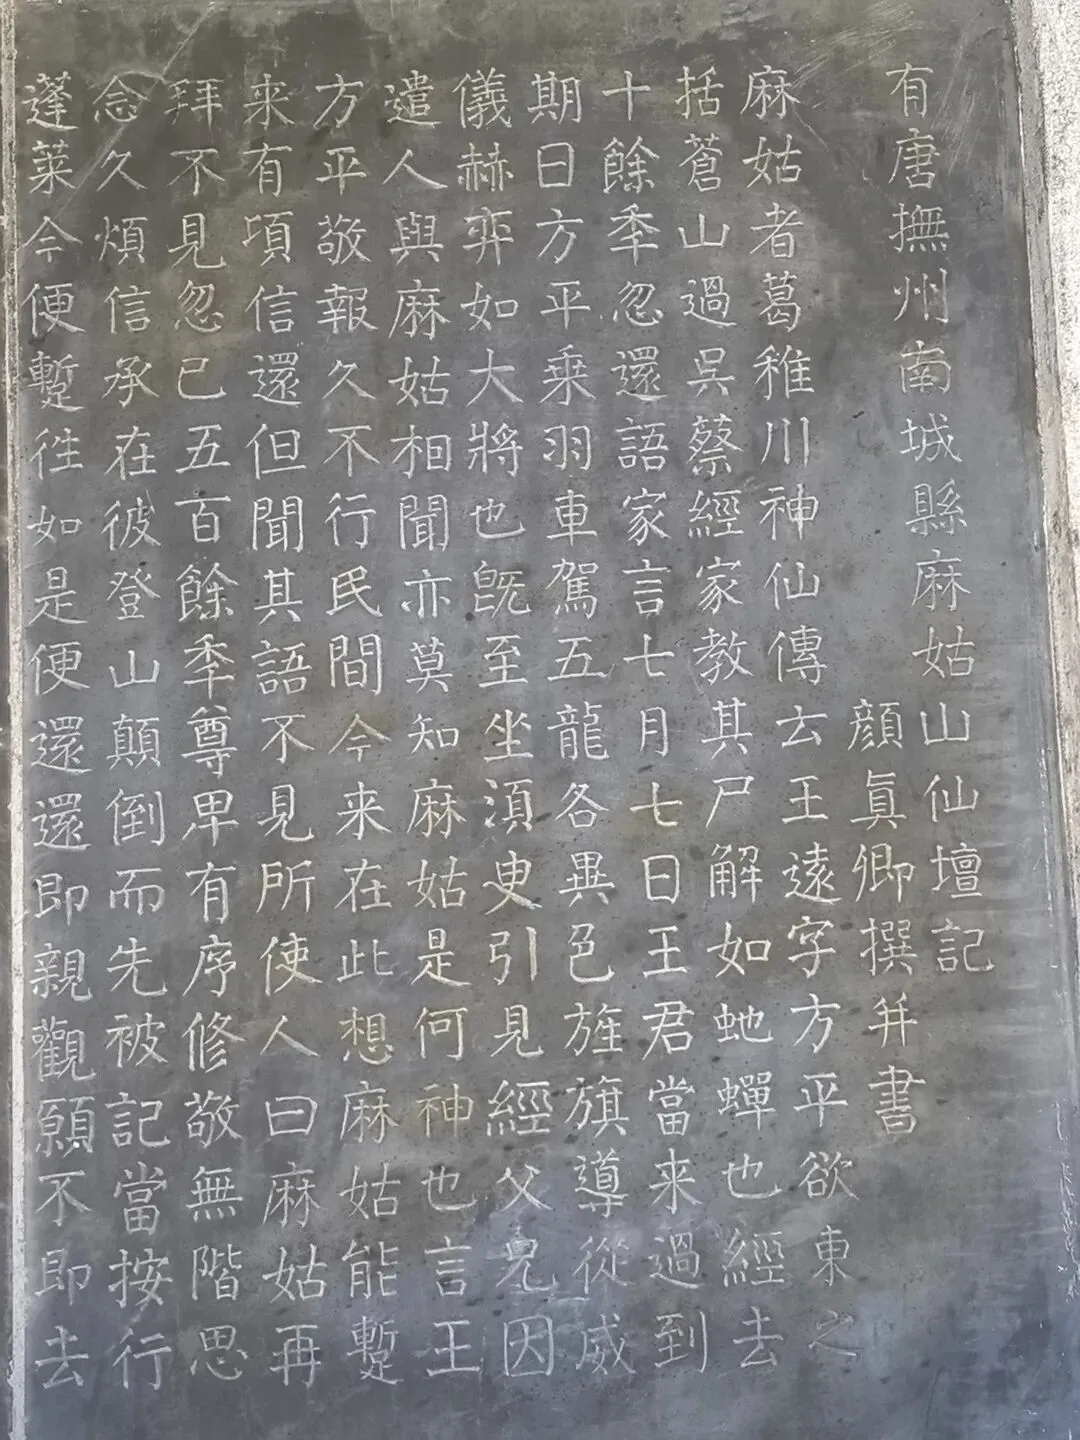 有唐撫州南城縣麻姑山仙壇記
顔眞卿撰并書
麻姑者葛稚川神仙傳云王遠字方平欲東之
括蒼山過吳蔡經家教其尸解如虵蟬也經去
十餘秊忽還語家言七月七日王君當来過到
期日方平乗羽車駕五龍各異色旌旗導從威
儀赫弈如大將也旣至坐湏臾引見經父兄因
遣人與麻姑相聞亦莫知麻姑是何神也言王
方平敬報久不行民間今来在此想麻姑能蹔
来有頃信還但聞其語不見所使人曰麻姑再
拜不見忽已五百餘秊尊卑有序修敬無階思
念久煩信承在彼登山顛倒而先被記當按行
蓬萊今便蹔往如是便還還即親觀願不即去